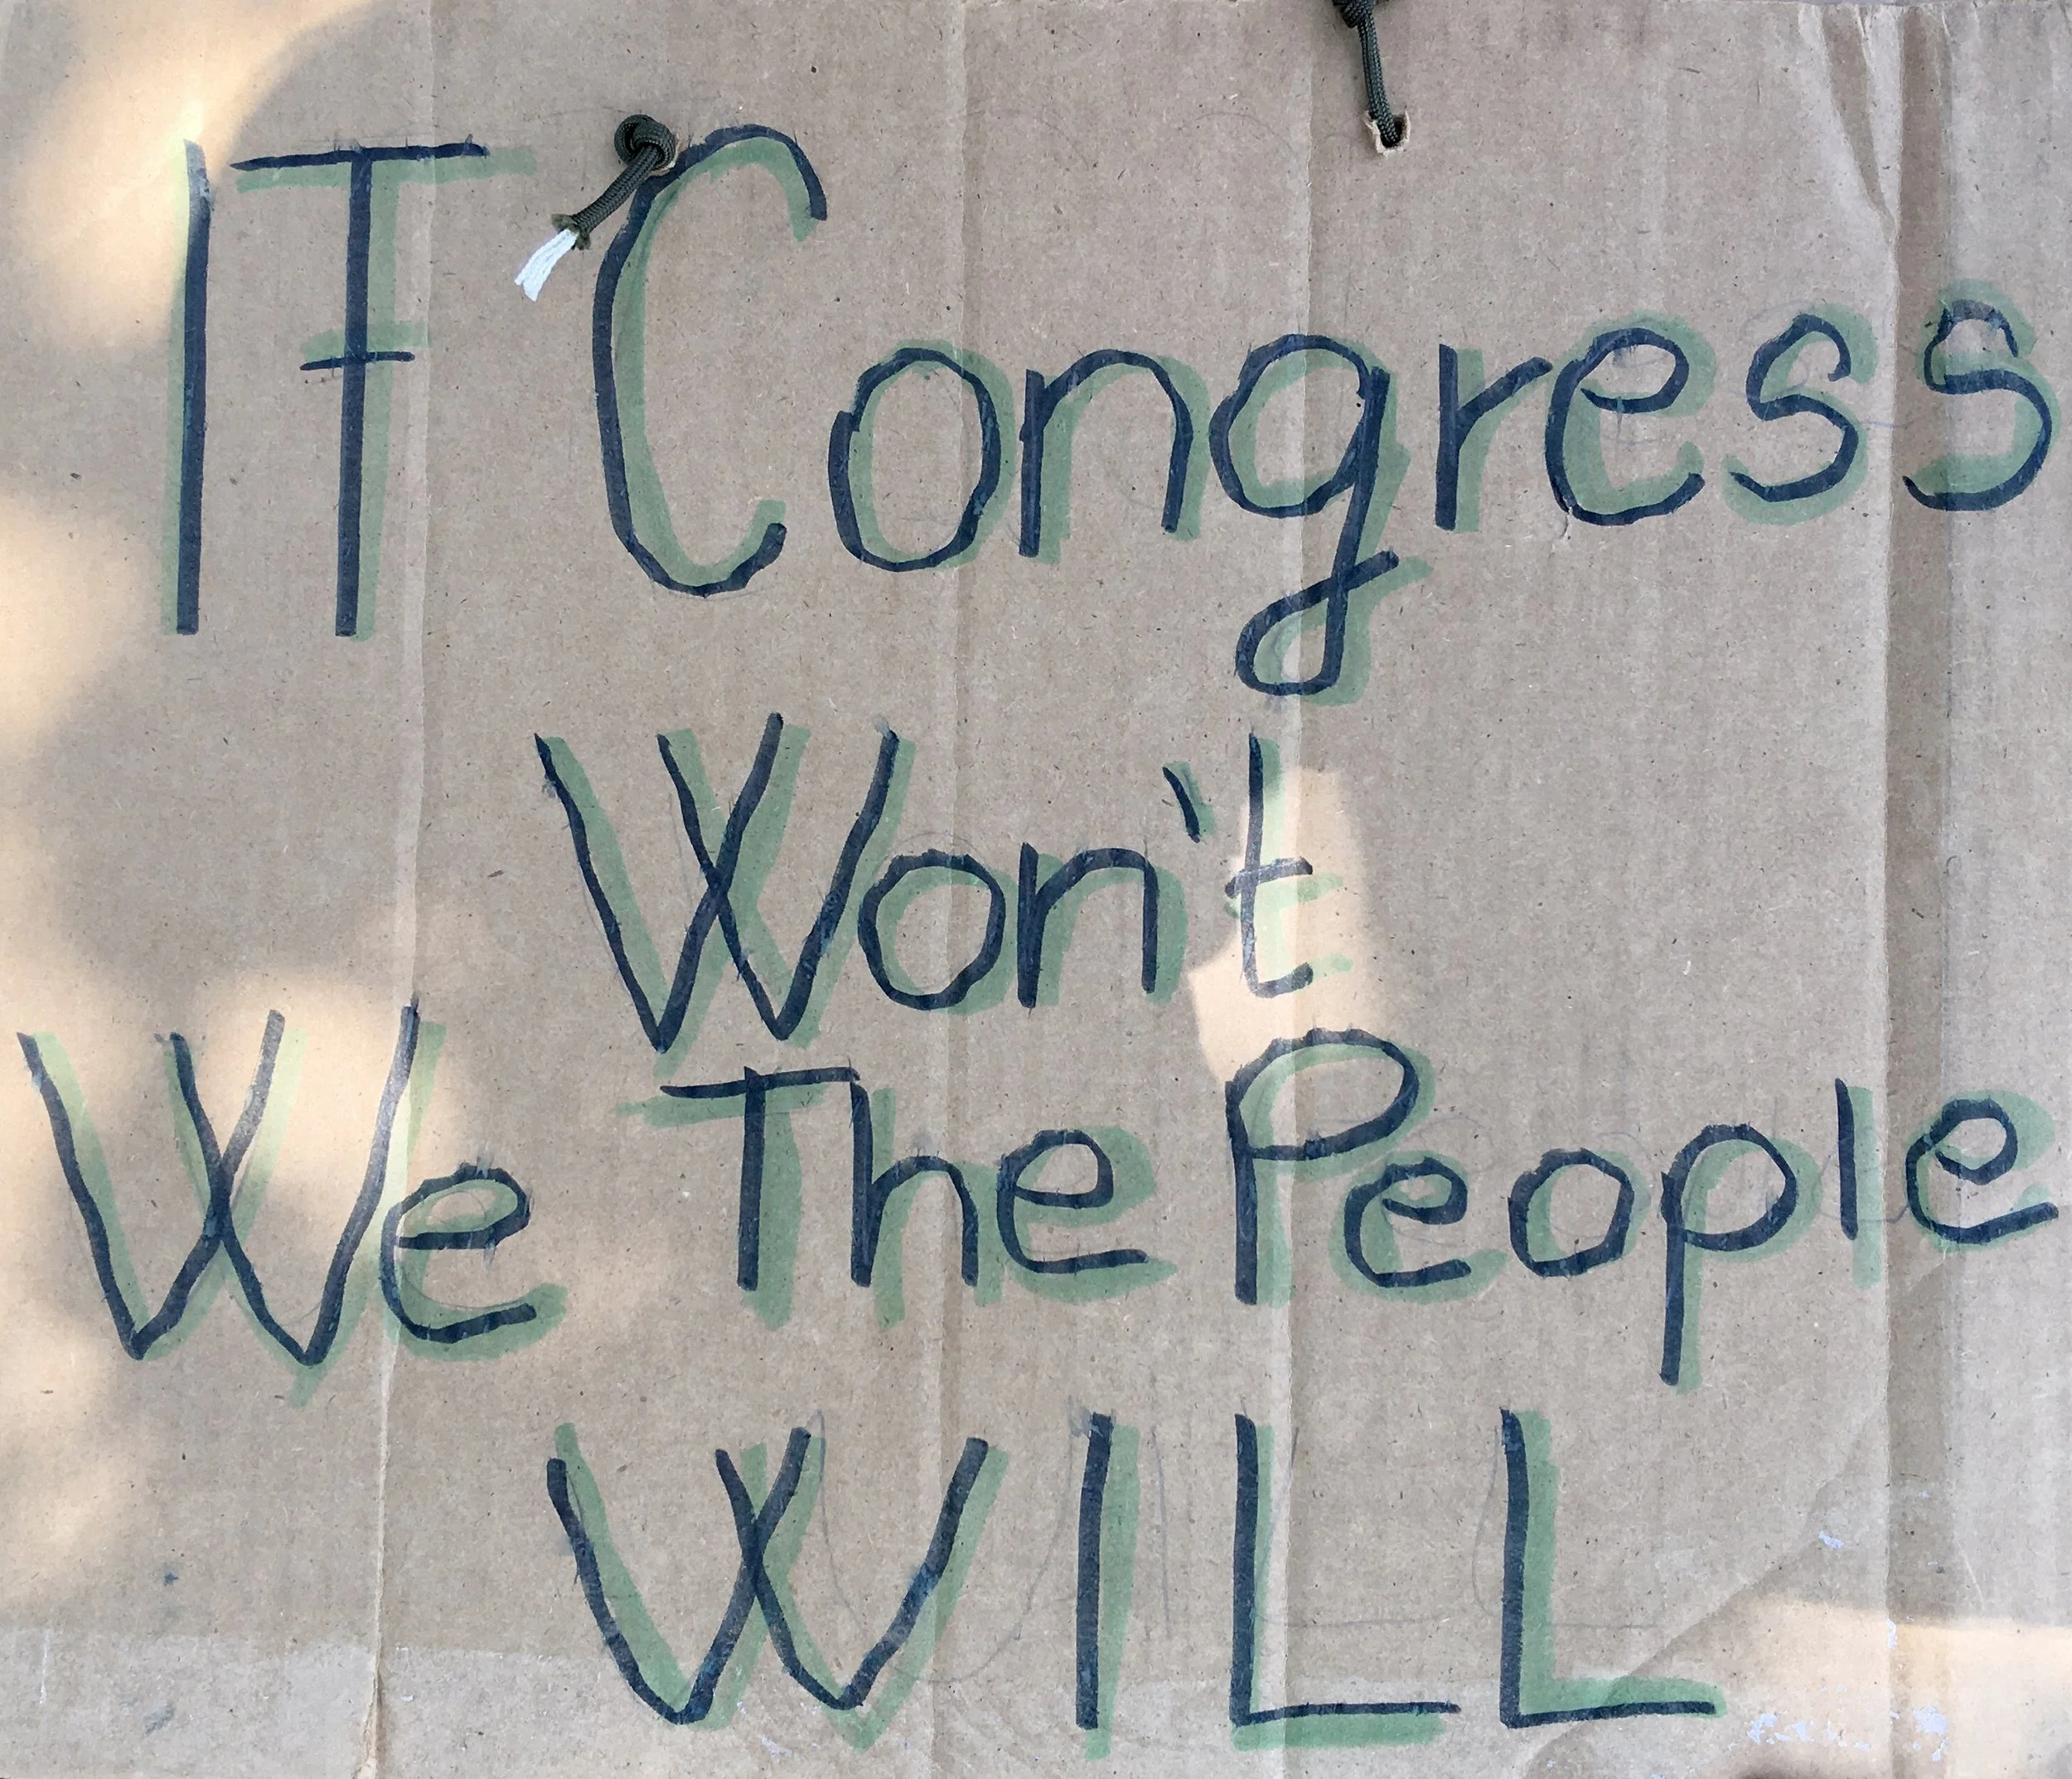 IF Congress
Won't
We The People
WILL